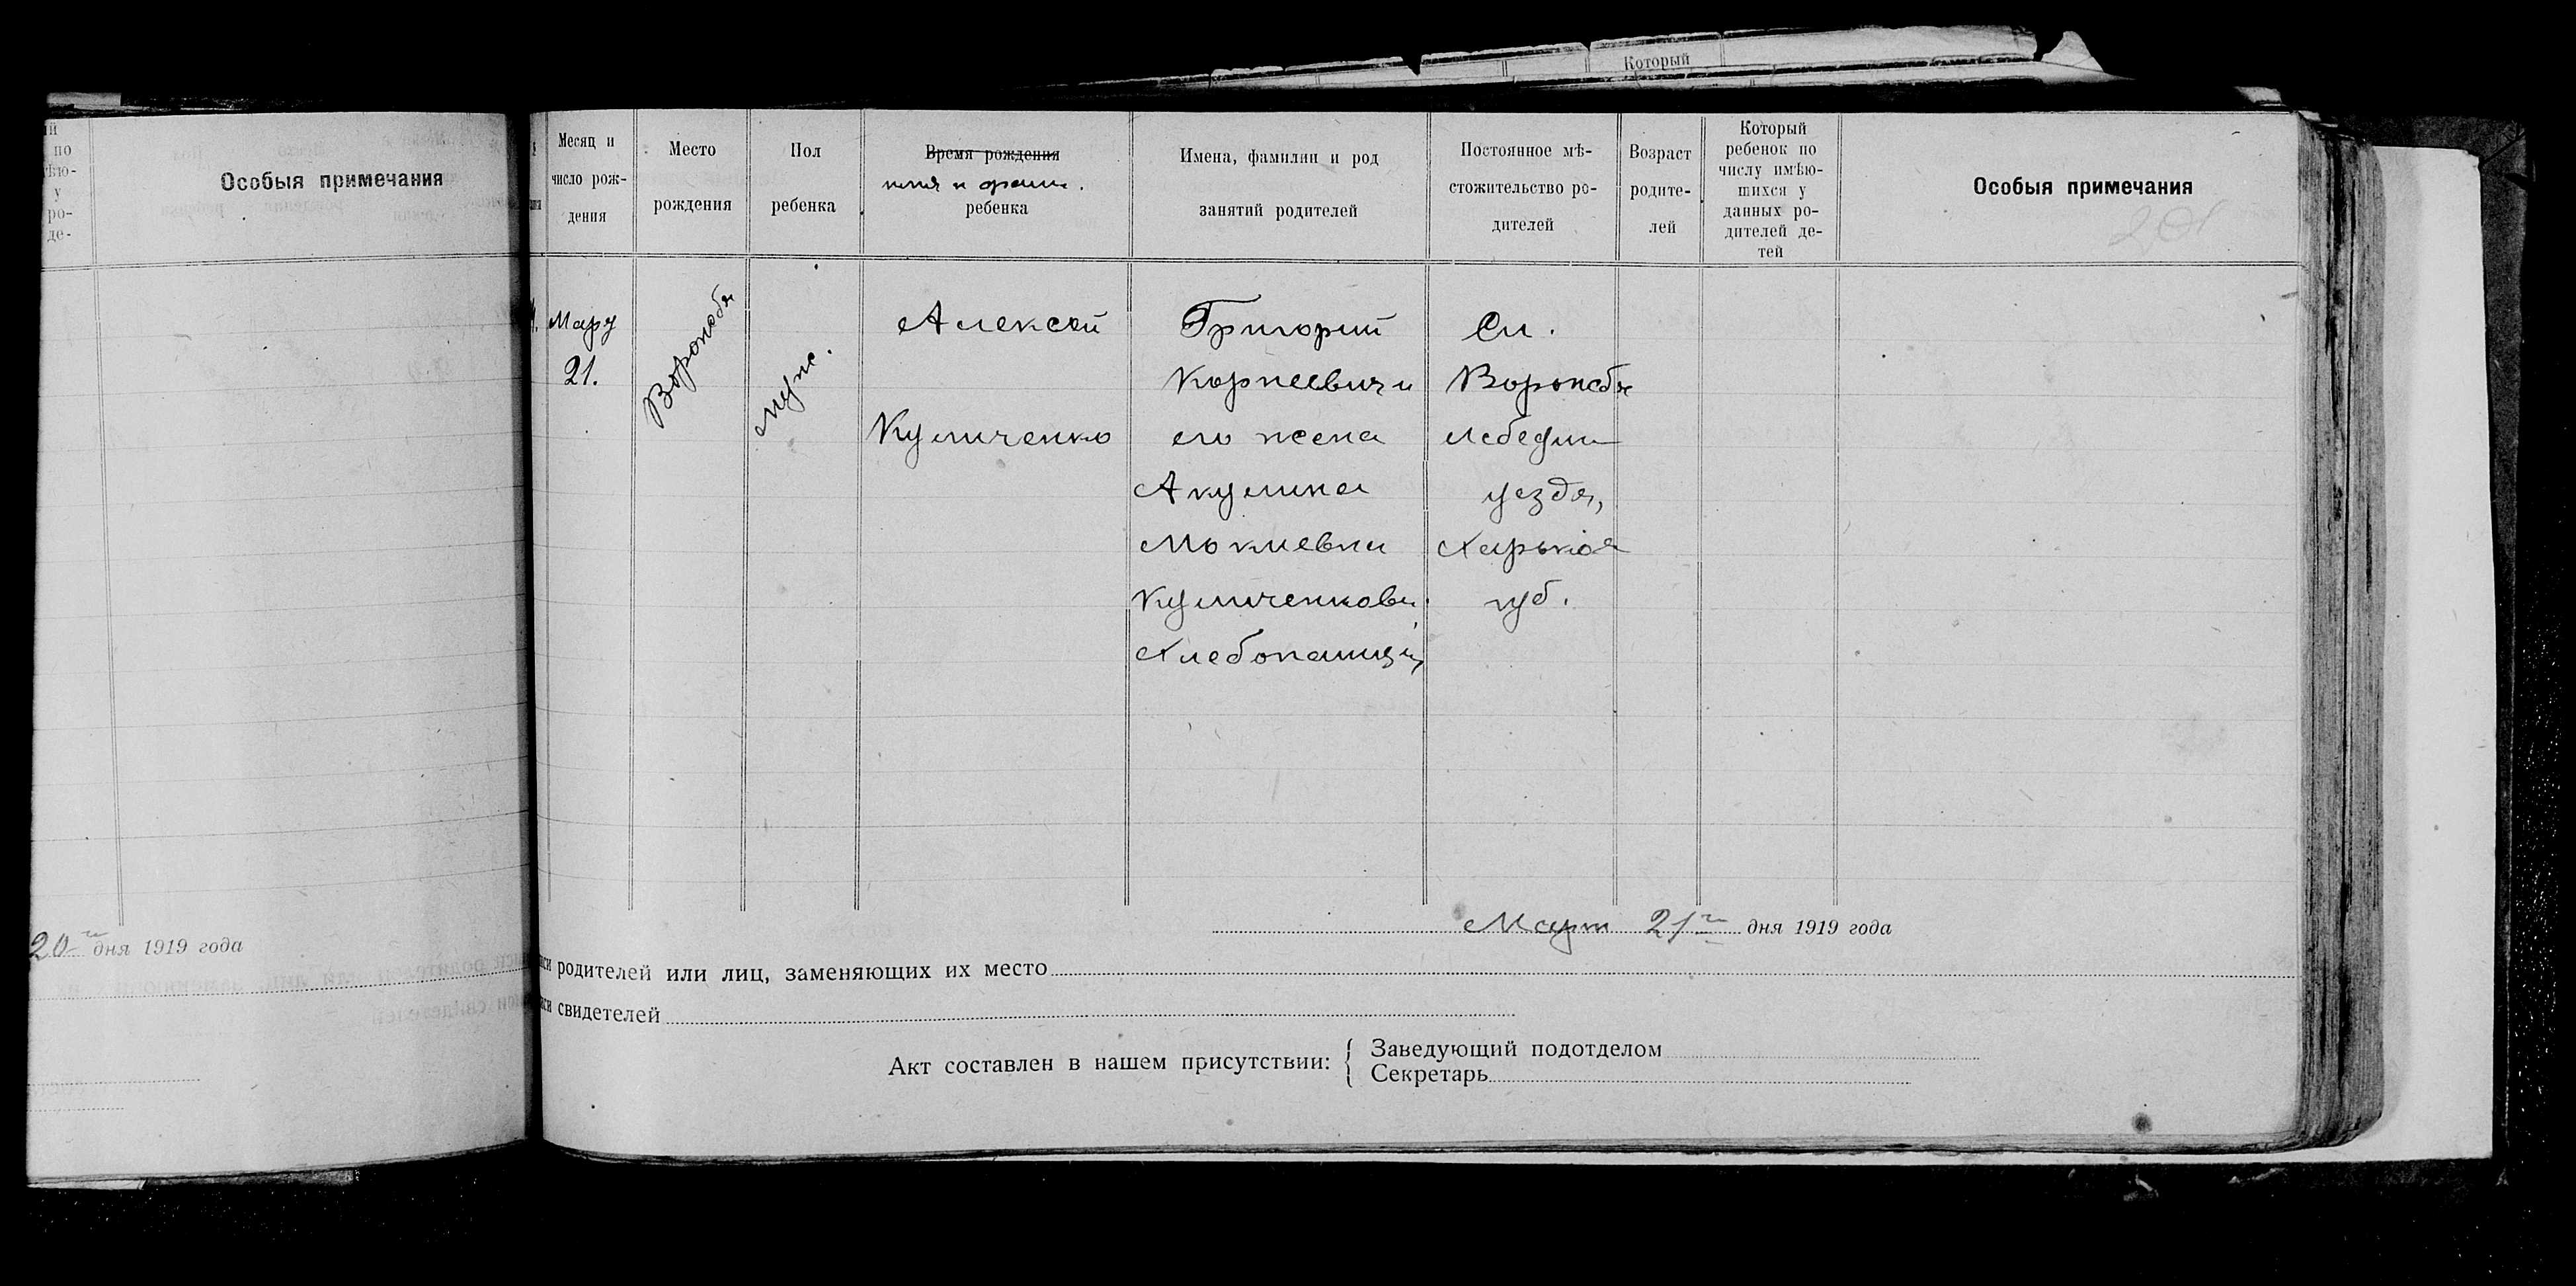 Который
ій
по
ѣю-
у
ро-
де-
Особыя примечания
20го дня 1919 года
Месяц и
число рож-
дения
Место
рождения
Пол
ребенка
Время рождения
имя и фами.
ребенка
Имена, фамилии и род
занятий родителей
Постоянное мѣ-
стожительство ро-
дителей
Возраст
родите-
лей
Который
ребенок по
числу имѣю-
щихся у
данных ро-
дителей де-
тей
Особыя примечания
201
Март
21.
Ворожба
муж.
Алексей
Куличенко
Григорий
Корнеевич и
его жена
Акулина
Мокиевна
Куличенковы.
Хлебопашцы
Сл.
Ворожба
Лебедин
уезда,
Харьков
губ.
Март 21го дня 1919 года
иси родителей или лиц, заменяющих их место
иси свидетелей
Акт составлен в нашем присутствии:
Заведующий подотделом
Секретарь